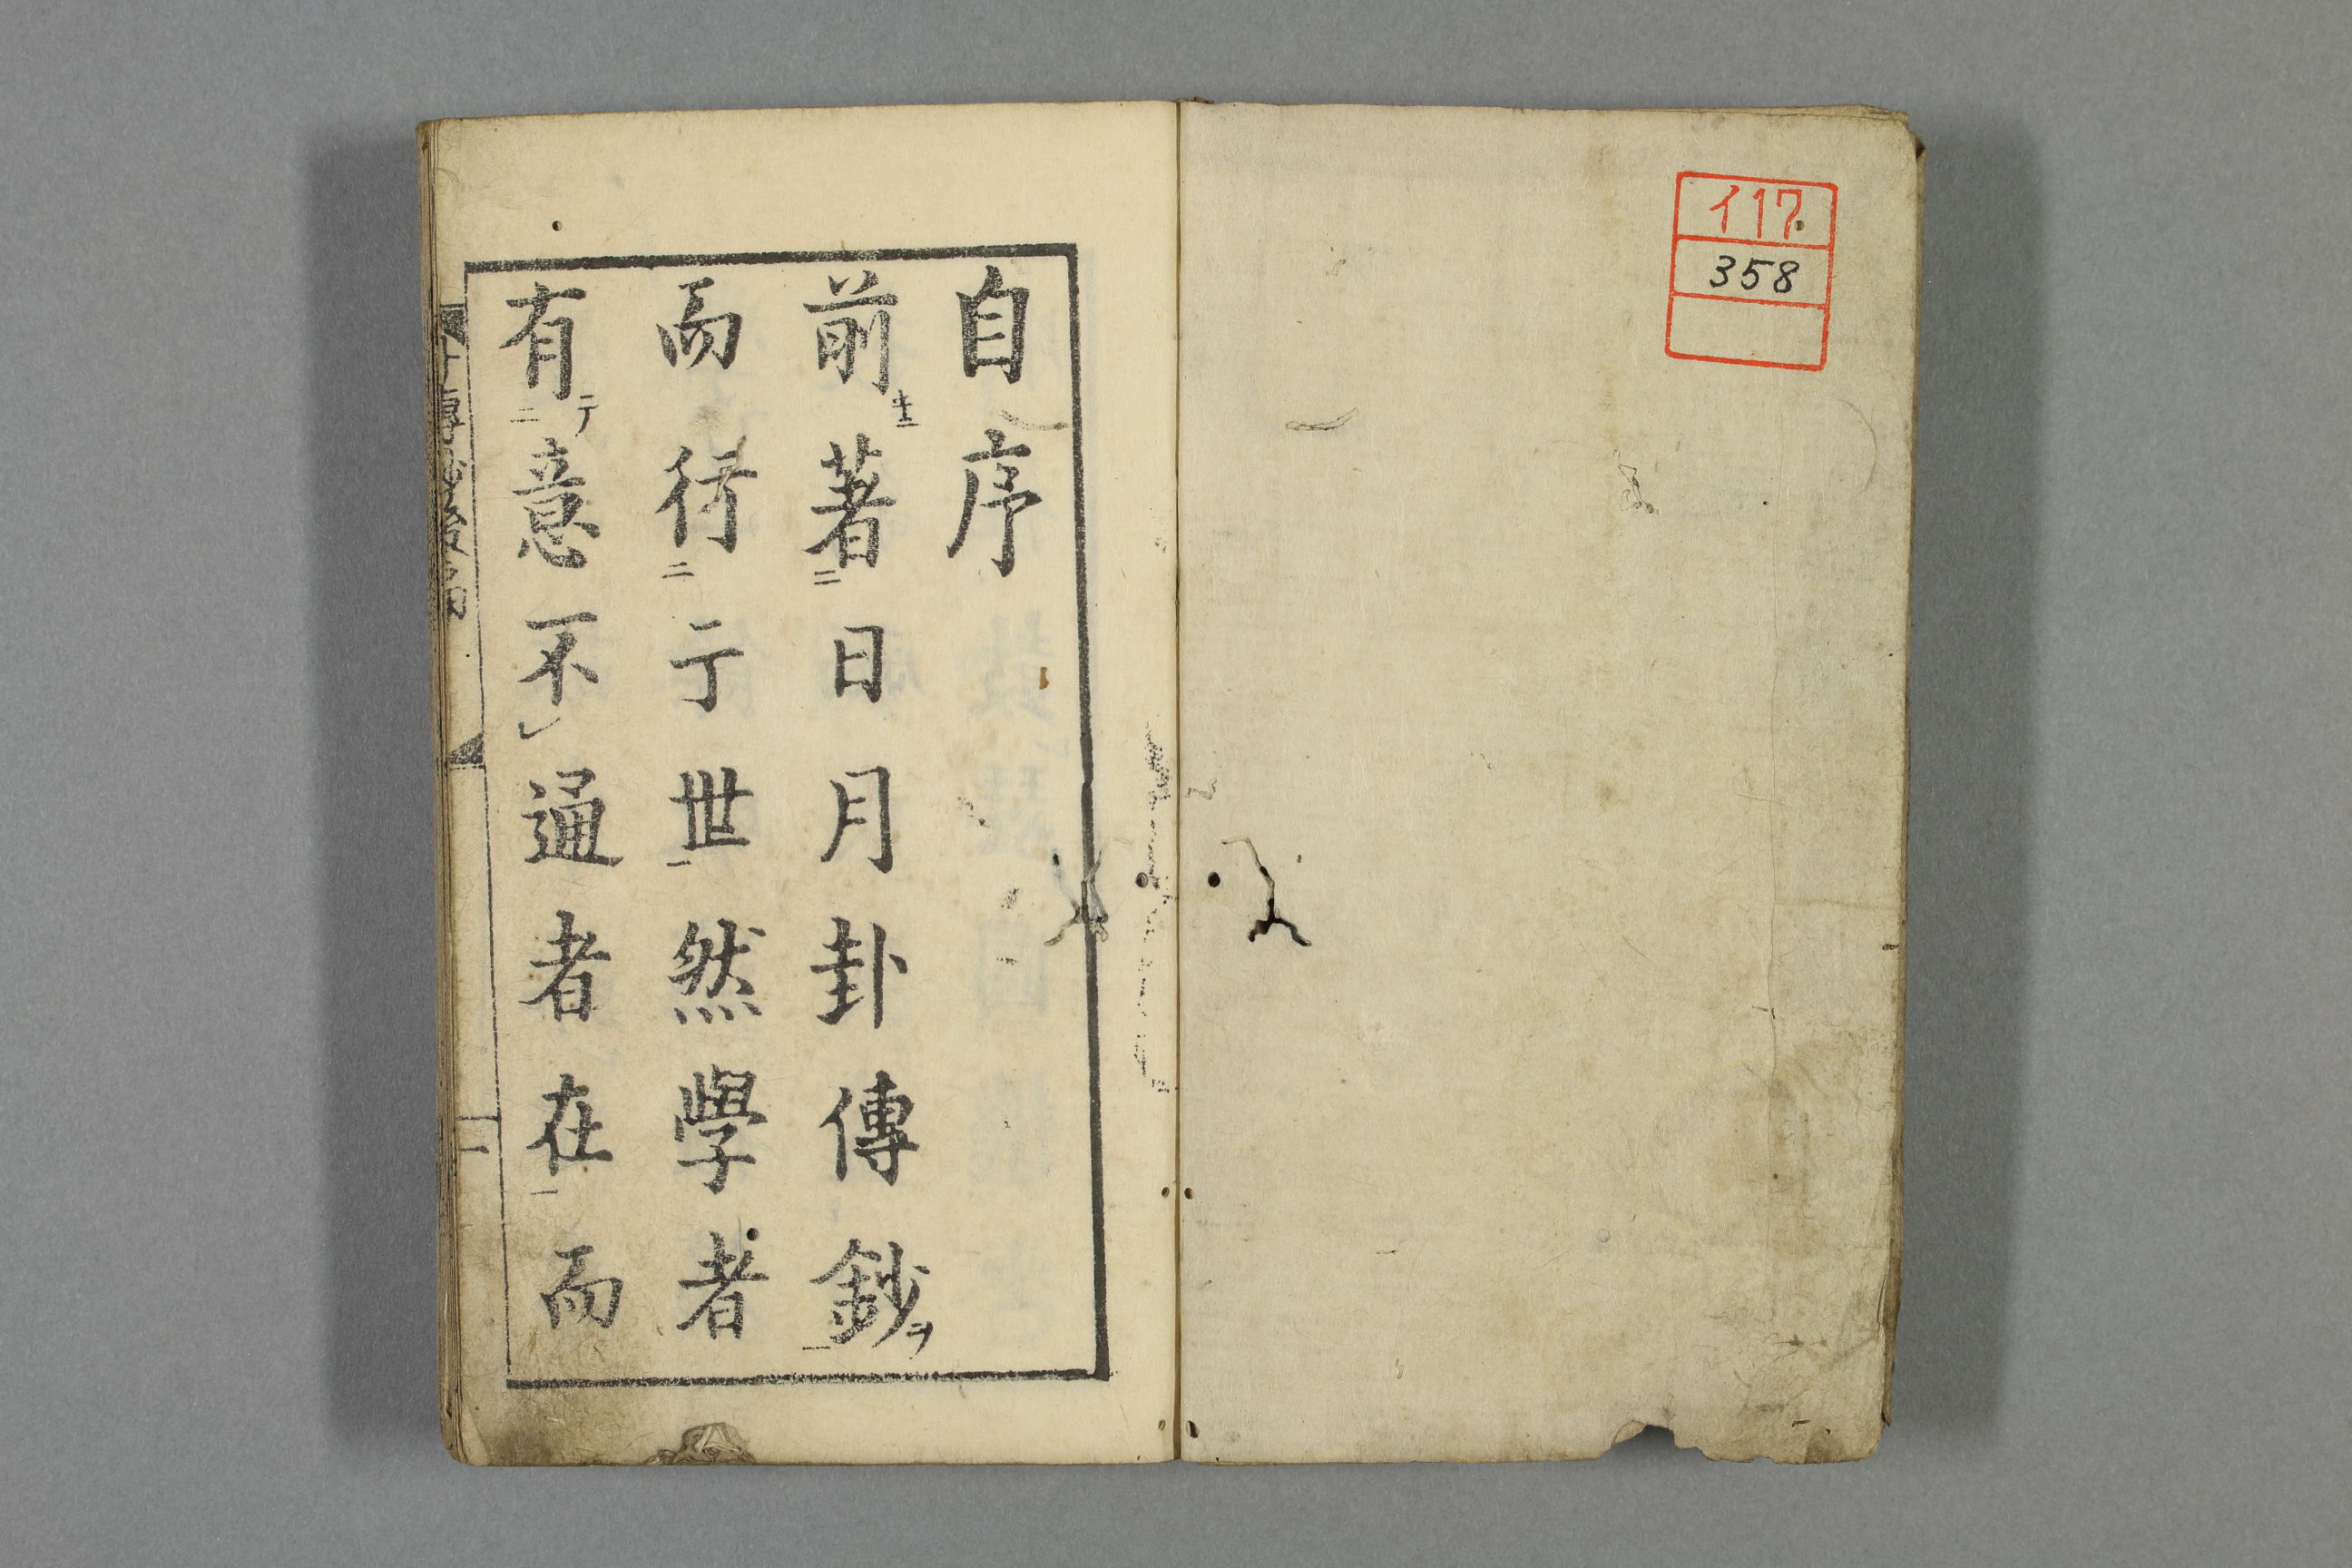 イ17
358
自序
前ニ著ス二日月卦傳鈔ヲ一
而行二于世一然學者
有テ二意不レ通者在一而